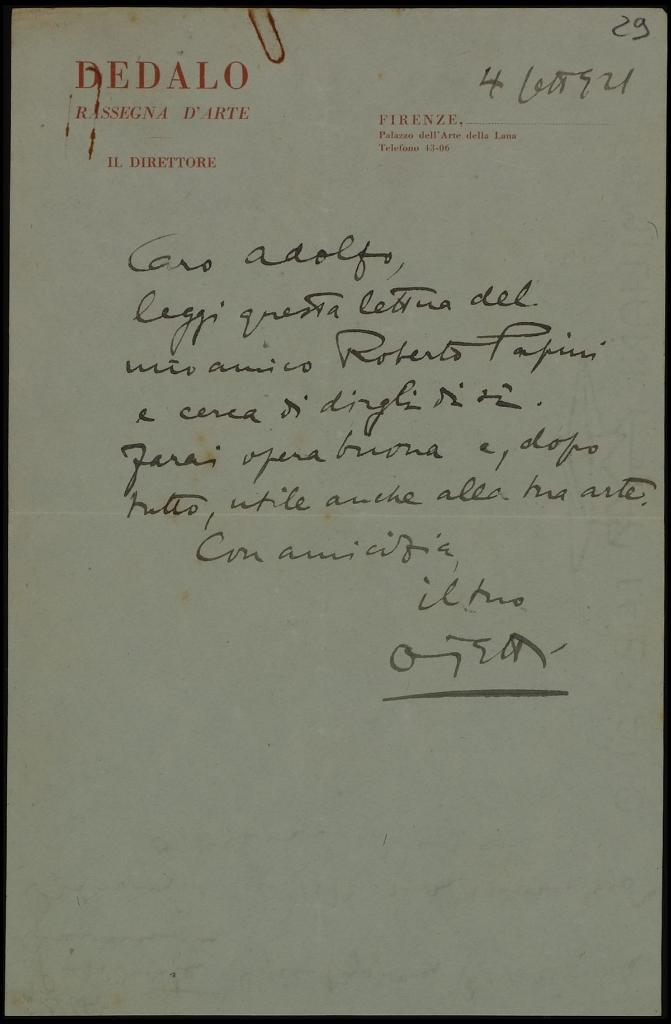 29
DEDALO
RASSEGNA D'ARTE
IL DIRETTORE
4 sett 921
FIRENZE,
Palazzo dell'Arte della Lana
Telefono 43-06
Caro Adolfo,
leggi questa lettera del
mio amico Roberto Papini
e cerca di dirgli di sì.
Farai opera buona e, dopo
tutto, utile anche alla tua arte.
Con amicizia,
il tuo
Ojetti